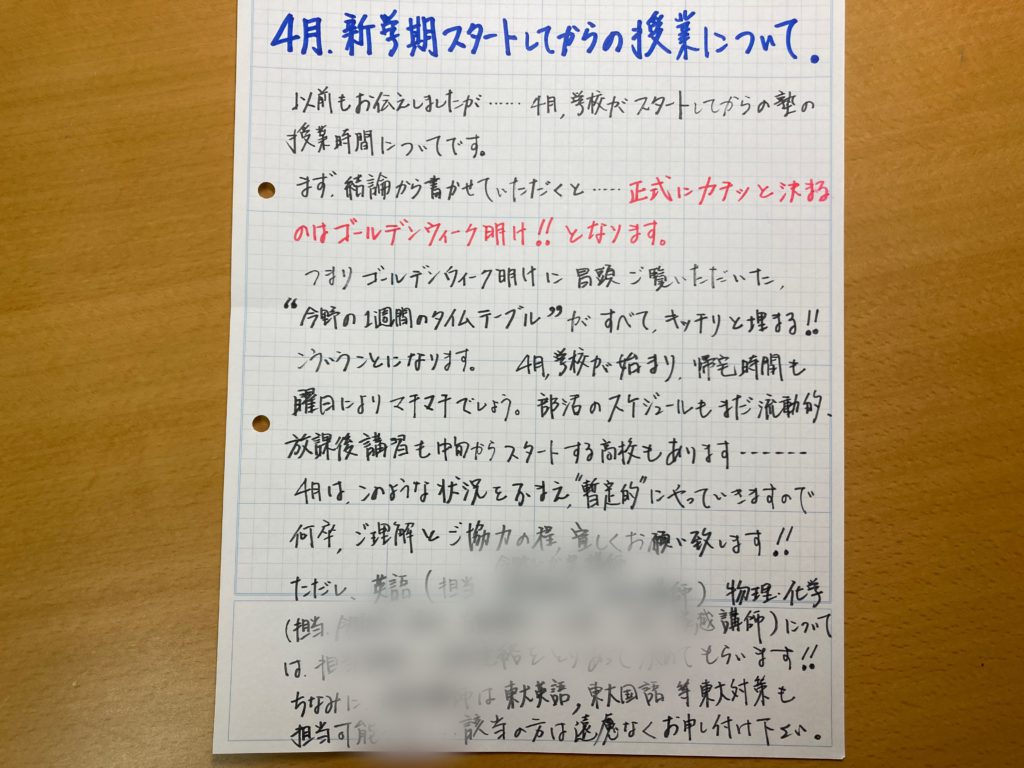 4月、新学期スタートしてからの授業について。
以前もお伝えしましたが…… 4月、学校がスタートしてからの塾の
授業時間についてです。
まず、結論から書かせていただくと…… 正式にカチッと決まる
のはゴールデンウィーク明け!! となります。
つまりゴールデンウィーク明けに冒頭ご覧いただいた、
“今野の1週間のタイムテーブル”がすべて、キッチリと埋まる!!
こういうことになります。 4月、学校が始まり、帰宅時間も
曜日によりマチマチでしょう。部活のスケジュールもまだ流動的、
放課後講習も中旬からスタートする高校もあります------
4月は、このような状況をふまえ、“暫定的”にやっていきますので
何卒、ご理解とご協力の程、宜しくお願い致します!!
ただし、英語(担当 師) 物理・化学
(担当、 講師)について
は、担当 をとりあって決めてもらいます!!
ちなみに は東大英語、東大国語 等 東大対策も
担当可能 該当の方は遠慮なくお申し付け下さい。